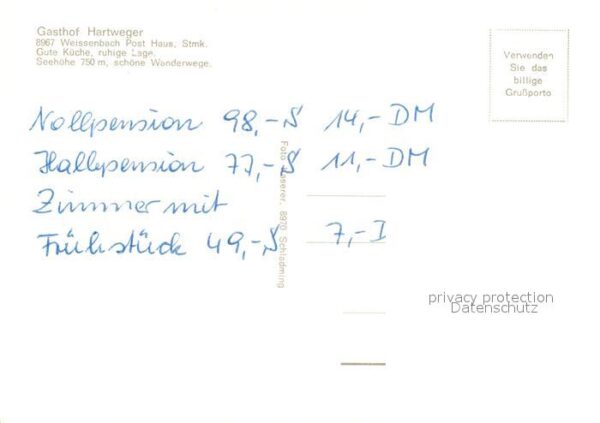 Gasthof Hartweger
8967 Weissenbach Post Haus, Stmk.
Gute Küche, ruhige Lage.
Seehöhe 750 m, schöne Wanderwege.
Verwenden
Sie das
billige
Grußporto
Vollpension 98,-S 14,- DM
Halbpension 77,-S 11,- DM
Zimmer mit
Frühstück 49,-S 7,-
8970 Schladming
Foto
privacy protection
Datenschutz